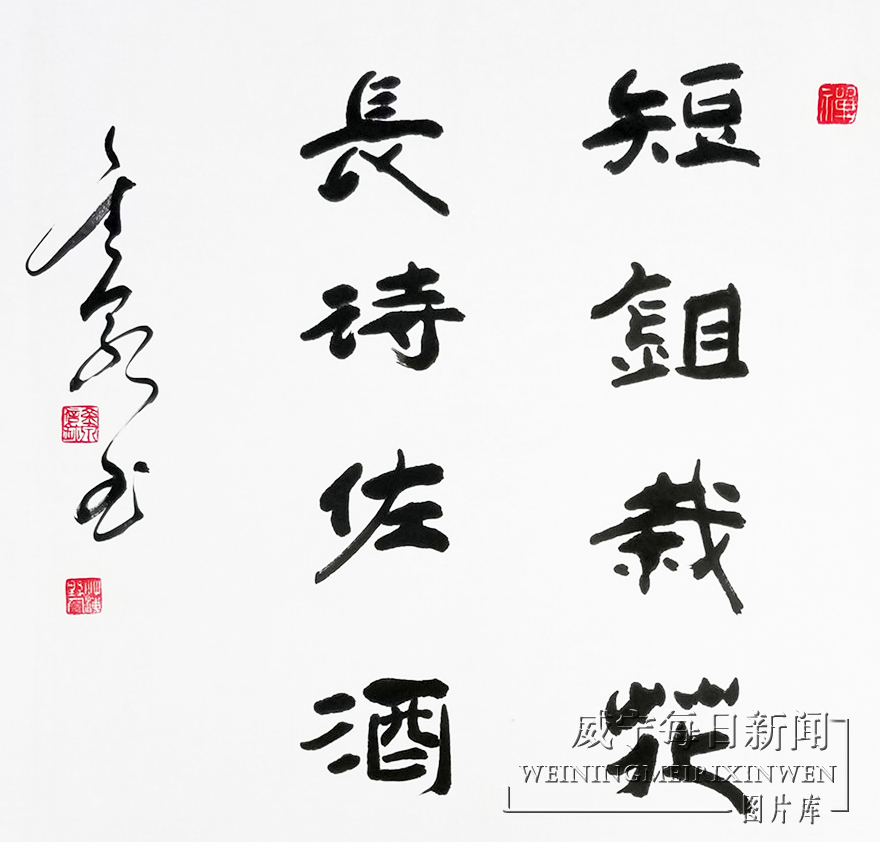 短鉏栽花
長诗佐酒
威宁每日新闻
WEININGMEIRIXINWEN
图片库